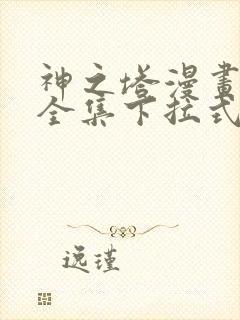 神之塔漫畫
全集下拉式
逸瑾